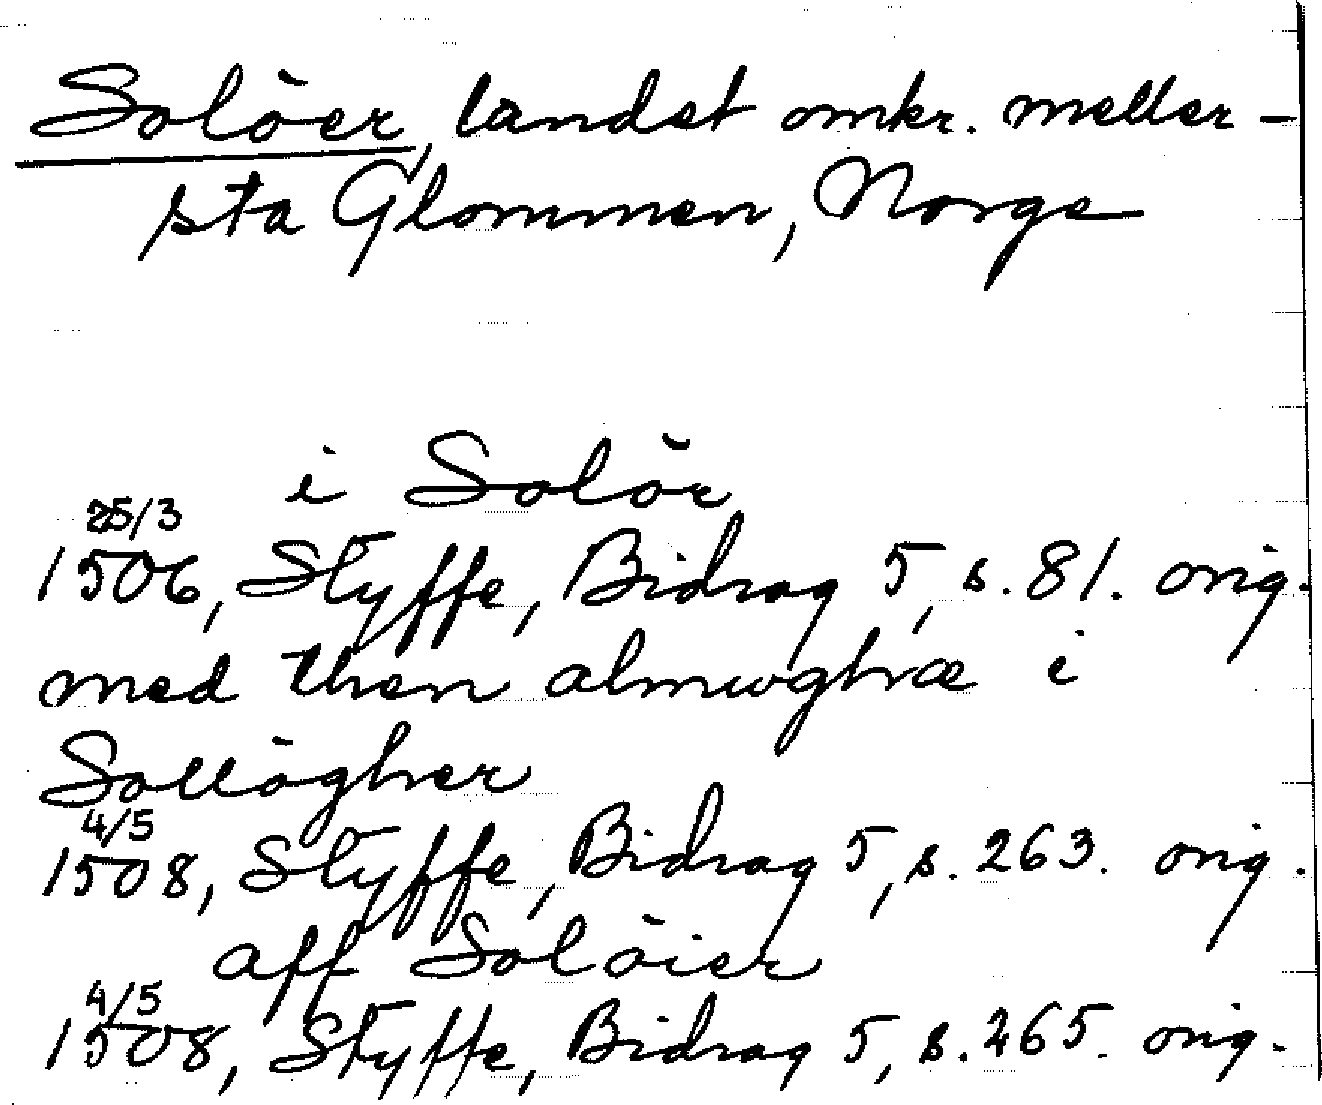 Solöer, landet omkr. meller-
sta Glommen, Norge
i Solör
25/3
1506, Styffe, Bidrag 5, s. 81. orig.
med then almwghæ i
Sollögher
4/5
1508, Styffe, Bidrag 5, s. 263. orig.
aff Solöier
4/5
1508, Styffe, Bidrag 5, s. 265. orig.